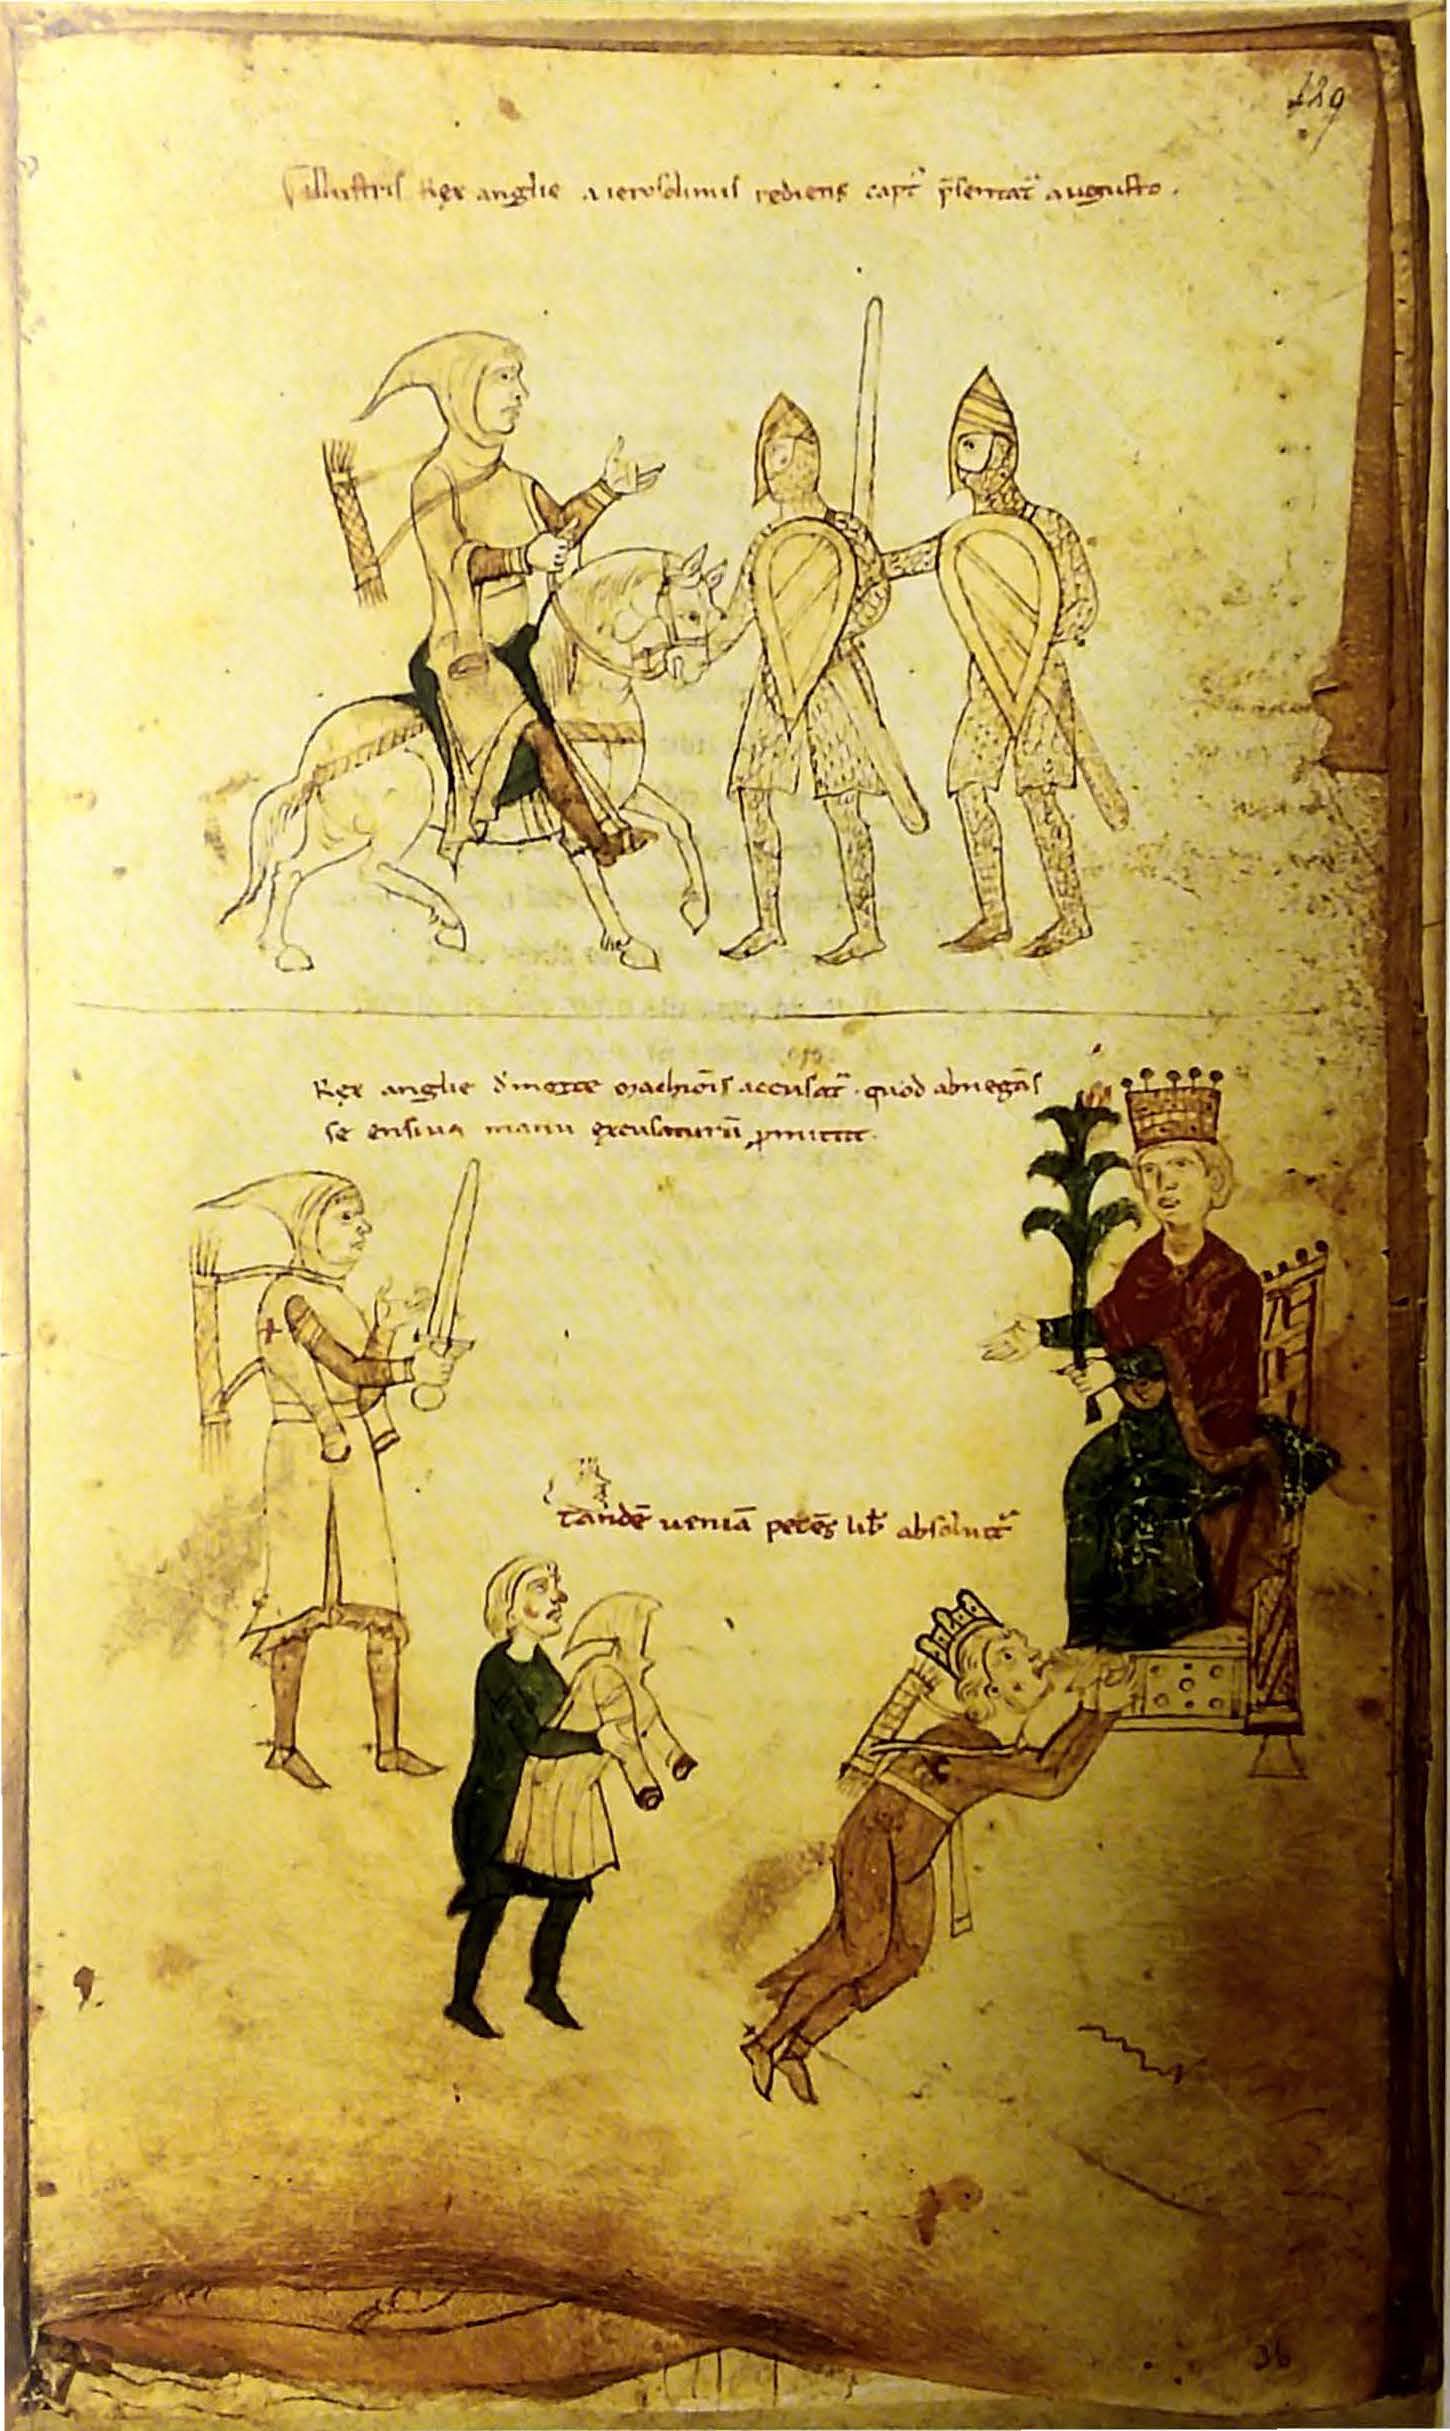 129
Illustris Rex anglie a ierosolimis rediens capt᷑ p̄sentat᷑ augusto.
Rex anglie d̕ morte marchiōis accusat᷑. quod abnegās
se ensiua manu excusaturū ꝓmittit.
tandē ueniā petēs lib̕ absoluit᷑
36